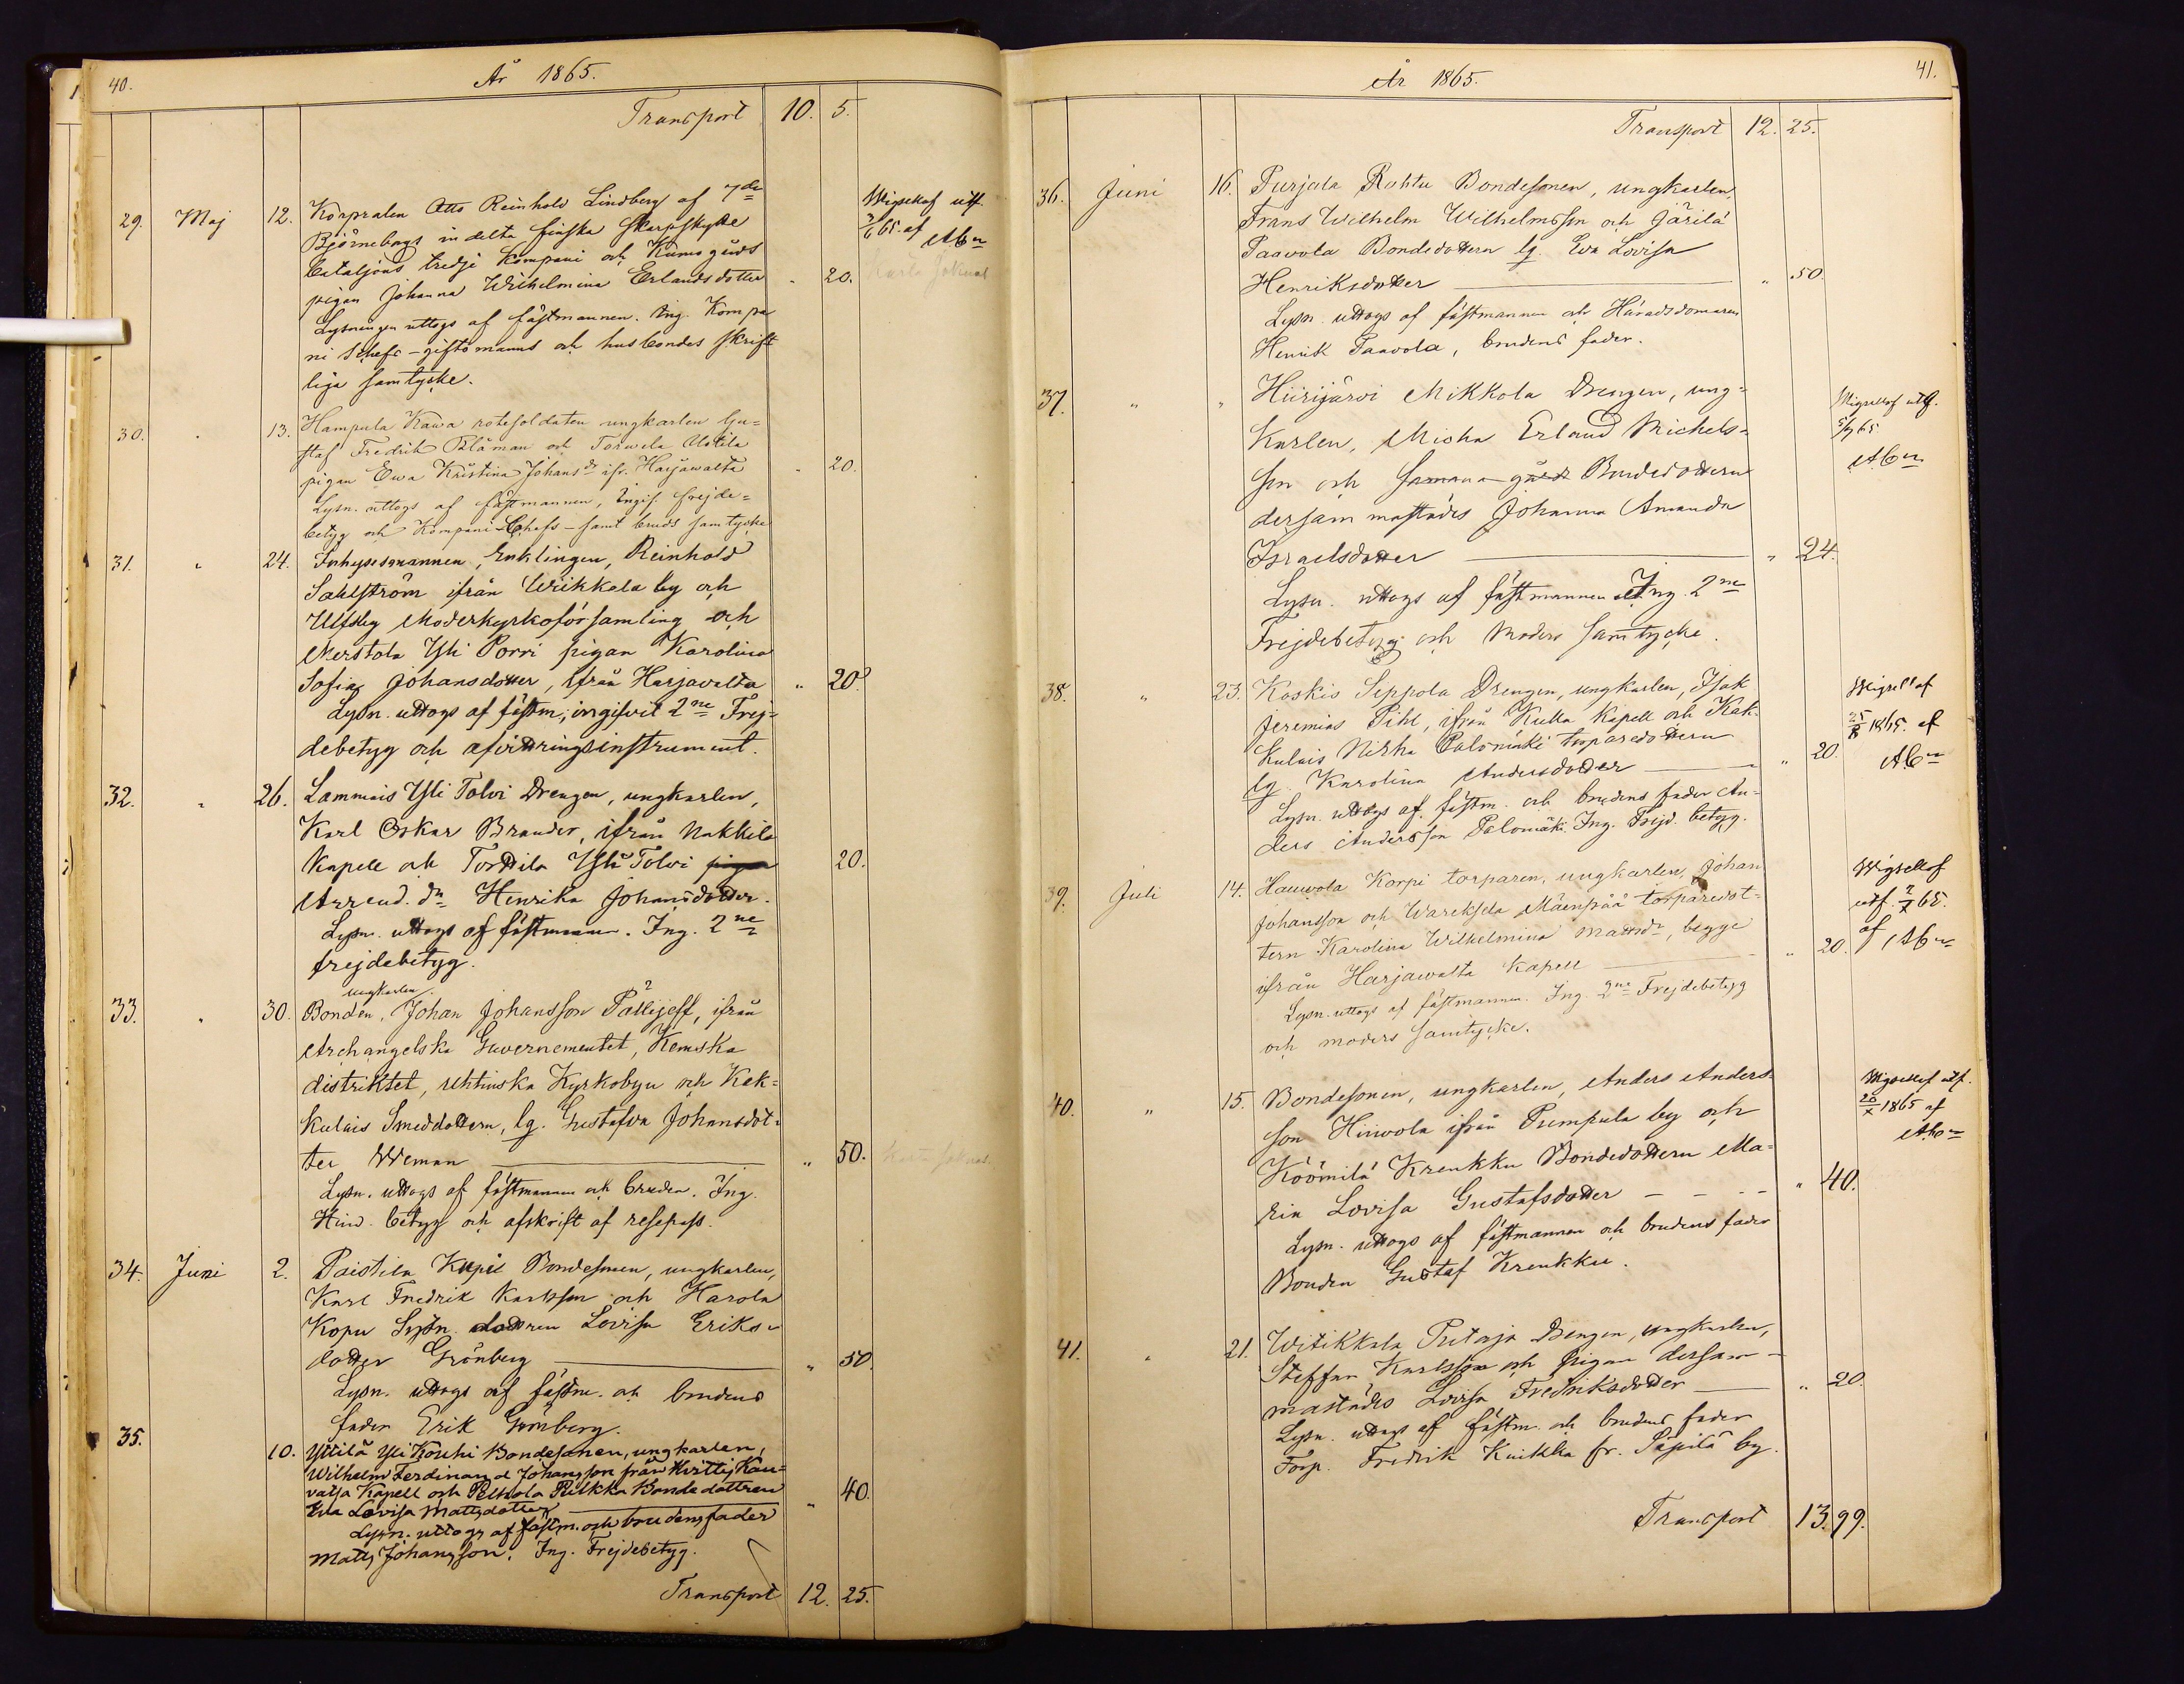 40.
År 1865.
Transport 10. 5.
29. Maj 12. Korpralen Otto Reinhold Lindberg af 7de
Björneborgs indelta finska Skarpskytte
bataljons tredje Kompani och Kumogårds
pigan Johanna Wilhelmina Erlandsdotter " 20.
Lysningen uttogs af fästmannen. Ing. Kompa
ni Schefs - giftomanns och husbondes skrift
liga samtycke.
Wigsellaf utf.
65. af
30. " 13. Hampula Kawa rotesoldaten ungkarlen Gu=
staf Fredrik Blåman och Torwela Uotila
pigan Ewa Kristina Johansdr ifr. Harjawalta " 20.
Lysn. uttogs af fästmannen, Ingif. frejde=
betyg och Kompani Chefs - samt bruds samtycke
31. " 24. Inhysesmannen, Enklingen, Reinhold
Sahlström ifrån Wiikkala by och
Ulfsby Moderkyrkoförsamling och
Merstola Yli Porri pigan Karolina
Sofia Johansdotter, ifrån Harjavalta " 20.
Lysn. uttogs af fästm; ingifvit 2ne Frej=
debetyg och afvittringsinstrument.
32. " 26. Lammais Yli Talvi Drengen, ungkarlen,
Karl Oskar Brander, ifrån Nakkila
Kapell och Torttila Yli Tolvi pigan 20.
Arrend. dr Henrika Johansdotter.
Lysn. uttogs af fästmannen. Ing. 2ne
frejdebetyg.
ungkarlen
33. " 30. Bonden, Johan Johansson Pállijeff, ifrån
Archangelska Guvernementet, Kemska
distriktet, Uhtinska Kyrkobyn och Kak=
kulais Smeddottern, lg. Gustafva Johansdot=
ter Weman " 50.
Lysn. uttogs af fästmannen och bruden. Ing.
Hind. betyg och afskrift af resepass.
34. Juni 2. Paistila Kupil Bondesonen, ungkarlen,
Karl Fredrik Karlsson och Harola
Kopu Sytn. dottren Lovisa Eriks=
dotter Grönberg " 50.
Lysn. uttogs af fästm. och brudens
fader Erik Grönberg.
35. 10. Yttilä Yli Kouhi Bondesonen, ungkarlen,
Wilhelm Ferdinand Johansson från Hvittis Kau=
vatsa Kapell och Peltola Pulkka Bondedottren
Eva Lovisa Mattsdotter " 40.
Lysn. uttogs af fästm. och brudens fader
Matts Johansson. Ing. Frejdebetyg.
Transport 12. 25.
41.
År 1865.
Transport 12. 25.
36. Juni 16. Purjala Rohtu Bondesonen, ungkarlen,
Frans Wilhelm Wilhelmsson och Järilä
Paavola Bondedottern lg. Eva Lovisa
Henriksdotter " 50.
Lysn. uttogs af fästmannen och Häradsdomaren
Henrik Paavola, brudens fader.
37. " " Hiirijärvi Mikkola Drengen, ung=
karlen, Micha Erland Michels=
son och samma gårds Bondedottern
dersammastädes Johanna Amanda
Israelsdotter " 24.
Lysn. uttogs af fästmannen Ing. 2ne
Frejdebetyg och Moders samtycke.
Wigsellaf utf.
65
38. " 23. Koskis Seppola Drengen, ungkarlen, Isak
Jeremias Pihl, ifrån Kulla Kapell och Kak=
kulais Niska Palomäki torparedottern
lg. Karolina Andersdotter " 20.
Lysn. uttogs af fästm. och brudens fader An=
ders Andersson Palomäki. Ing. Frejd. betyg.
Wigsellaf
25/8 1865. af
39. Juli 14. Hauwola Korpi torparen, ungkarlen, Johan
Johansson och Wareksela Mäenpää torparedot=
tern Karolina Wilhelmina Mattsdr, begge
ifrån Harjawalta Kapell " 20.
Lysn. uttogs af fästmannen. Ing. 2ne Frejdebetyg
och moders samtycke.
Wigsellaf
utf. 65.
af
40. " 15. Bondesonen, ungkarlen, Anders Anders=
son Hiiwola ifrån Pumpula by och
Köömilä Krenkku Bondedottern Ma=
ria Lovisa Gustafsdotter " 40.
Lysn. uttogs af fästmannen och brudens fader
Bonden Gustaf Krenkku.
Wigsellaf utf.
1865 af
41. " 21. Witikkala Pietarja Drengen, ungkarlen,
Steffan Karlsson och pigan dersam=
mastädes Lovisa Fredriksdotter " 20.
Lysn. uttogs af fästm. och brudens fader
Torp. Fredrik Kuikka fr. Papilå by.
Transport 13. 99.